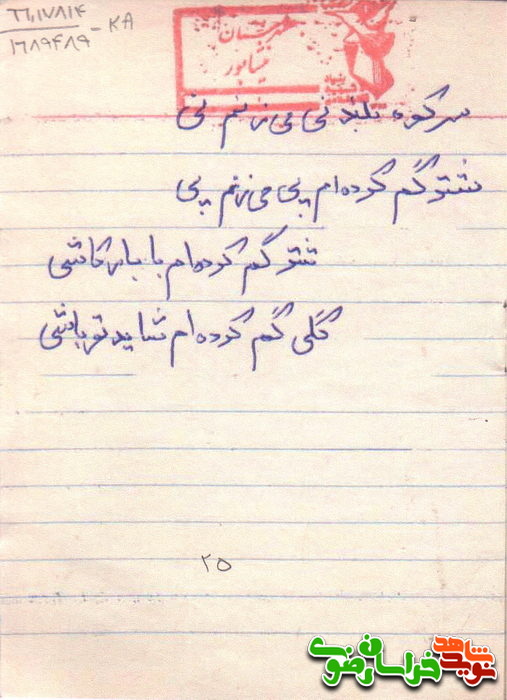 ۲۶۱۷۸۱۴
۱۶۸۹۴۸۹-KA
شهرستان
نیشابور
سر کوه بلند نی می زنم نی
شتو گم کرده ام پی می زنم پی
شتر گم کرده ام با بار کاشی
گلی گم کرده ام شاید تو باشی
۲۵
نوید شاهد
خراسان رضوی